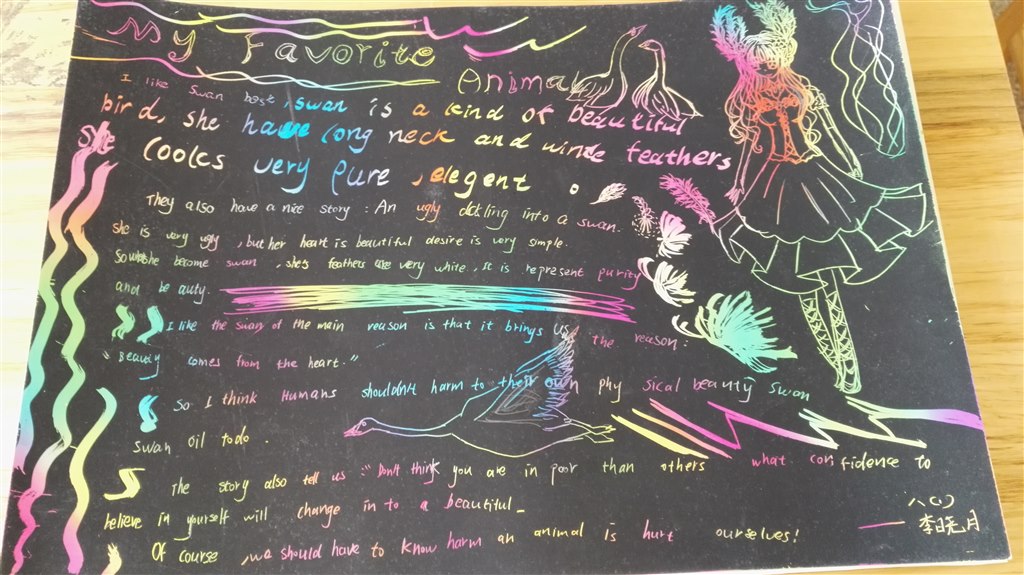 My Favorite
Animal
I like swan best, swan is a kind of beautiful
bird, she have long neck and winde feathers
She looks very pure, elegent.
They also have a nice story: An ugly dickling into a swan.
she is very ugly, but her heart is beautiful desire is very simple.
she become swan, she's feathers are very white, It is represent purity
and beauty.
I like the swan of the main reason is that it brings us the reason:
"Beauty comes from the heart."
So I think Humans shouldn't harm to their own phy sical beauty swan
swan oil todo.
The story also tell us: "Don't think you are in poor than others what confidence to
believe in yourself will change in to a beautiful_
Of course, we should have to know harm an animal is hurt ourselves!
八(1)
李晓月